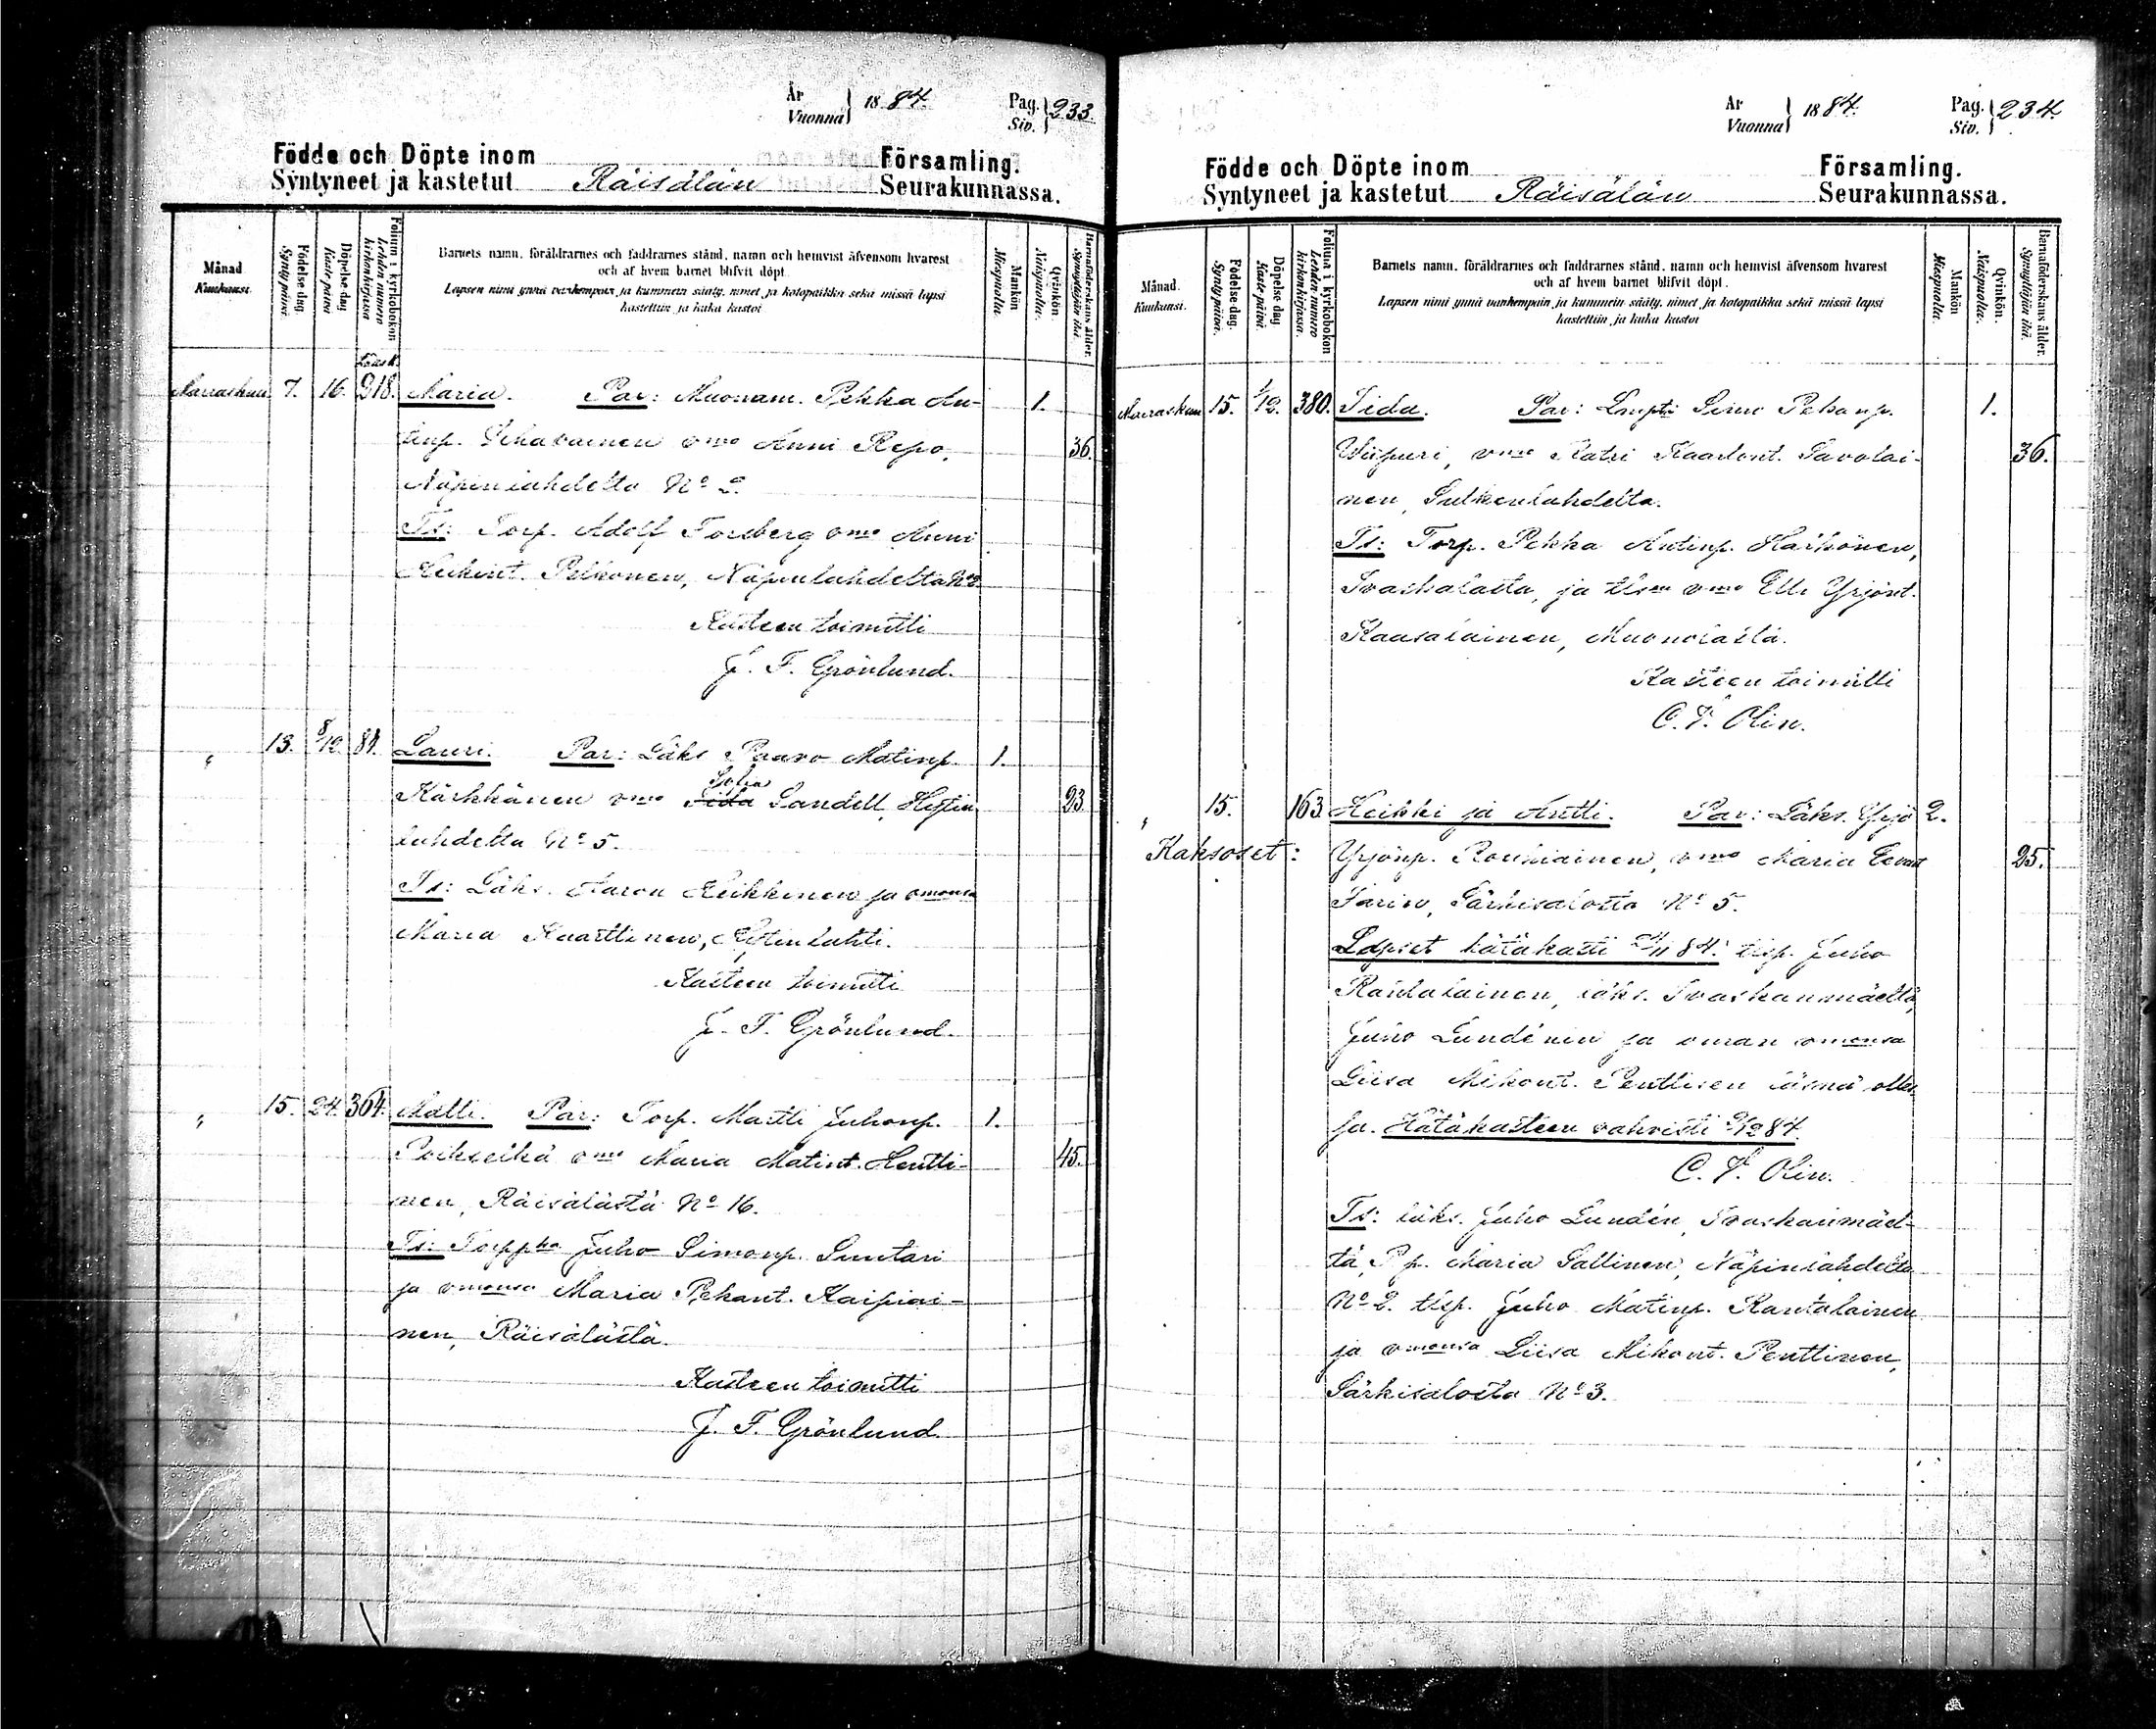 År
Vuonna } 1884. Pag.
Siv. } 233.
Födde och Döpte inom Församling.
Syntyneet ja kastetut Räisälän Seurakunnassa.
Månad
Kuukausi.
Födelse dag.
Syntypäivä.
Döpelse dag
Kaste päivä
Folium i kyrkoboken
Lehden numero
kirkonkirjassa
Barnets namn, föräldrarnes och faddrarnes stånd, namn och hemvist äfvensom hvarest
och af hvem barnet blifvit döpt.
Lapsen nimi ynnä vanhempain ja kummein sääty, nimet ja kotopaikka sekä missä lapsi
kastettiin ja kuka kastoi
Mankön
Miespuolia.
Qvinkön.
Naispuolia.
Barnaföderskans ålder.
Synnyttäjän ikä.
Marraskuu 7. 16. 218. Maria. Par: Muonam. Pekka An- 1.
tinp. vmo Anni Repo, 36.
Näpinlahdelta No 2.
Ts: Torp. Adolf Forsberg vmo Anni
Heikint. Pelkonen, Näpinlahdelta No 2
Kasteen toimitti
J. F. Grönlund.
" 13. 8/12. 81. Lauri. Par: Läks Paavo Matinp. 1.
Sofia
Kärkkänen vmo Iida Sandell, Hytin 23.
lahdelta No 5.
Ts: Läks. Aaron Heikkinen ja vmonsa
Maria Kuarttinen, Hytinlahti.
Kasteen toimitti
J. F. Grönlund.
" 15. 24. 364. Matti. Par: Torp. Martti Juhonp. 1.
Poikselkä vmo Maria Matint. Hentti- 45.
nen, Räisälästä No 16.
Ts: Torppri Juho Simonp. Suutari
ja vmonsa Maria Pekant. Kaipiai-
nen, Räisälästä.
Kasteen toimitti
J. F. Grönlund.
År
Vuonna } 1884. Pag.
Siv. } 234.
Födde och Döpte inom Församling.
Syntyneet ja kastetut Räisälän Seurakunnassa.
Månad.
Kuukausi.
Födelse dag.
Syntypäivä.
Döpelse dag
Kaste päivä.
Folium i kyrkoboken
Lehden numero
kirkonkirjassa.
Barnets namn, föräldrarnes och faddrarnes stånd, namn och hemvist äfvensom hvarest
och af hvem barnet blifvit döpt.
Lapsen nimi ynnä vanhempain ja kummein sääty, nimet ja kotopaikka sekä missä lapsi
kastettiin ja kuka kastoi
Mankön
Miespuolia.
Qvinkön.
Naispuolia.
Barnaföderskans ålder.
Synnyttäjän ikä.
Marraskuu 15. 1/12. 380. Iida. Par: Simo Pekanp. 1.
Wiipuri, vmo Katri Kaarlent. Savolai- 36.
nen, Sulkenlahdelta.
Ts: Torp. Pekka Antinp. Härkönen,
Ivaskalasta, ja vmo Elli Yrjönt.
Kaasalainen, Muonolasta.
Kasteen toimitti
C. V. Olin.
" 15. 163 Heikki ja Antti. Par: Läks. Yrjö 2.
Kaksoset: Yrjönp. Rouhiainen, vmo Maria 25.
Särkisalosta No 5.
Lapset hätäkasti /11 84. tlsp. Juho
Rantalainen, läks. Ivaskanmäeltä,
Juho Lundénin ja oman vmonsa
Liisa Mikont. Penttisen läsnä olles-
sa. Hätäkasteen vahvisti 2/12 84.
C. V. Olin.
Ts: läks. Juho Lundén, Ivaskanmäel-
tä, P p. Maria Sallinen, Näpinlahdelta
No 2. tlsp. Juho Matinp. Rantalainen
ja vmonsa Liisa Mikont. Penttinen,
Särkisalosta No 3.